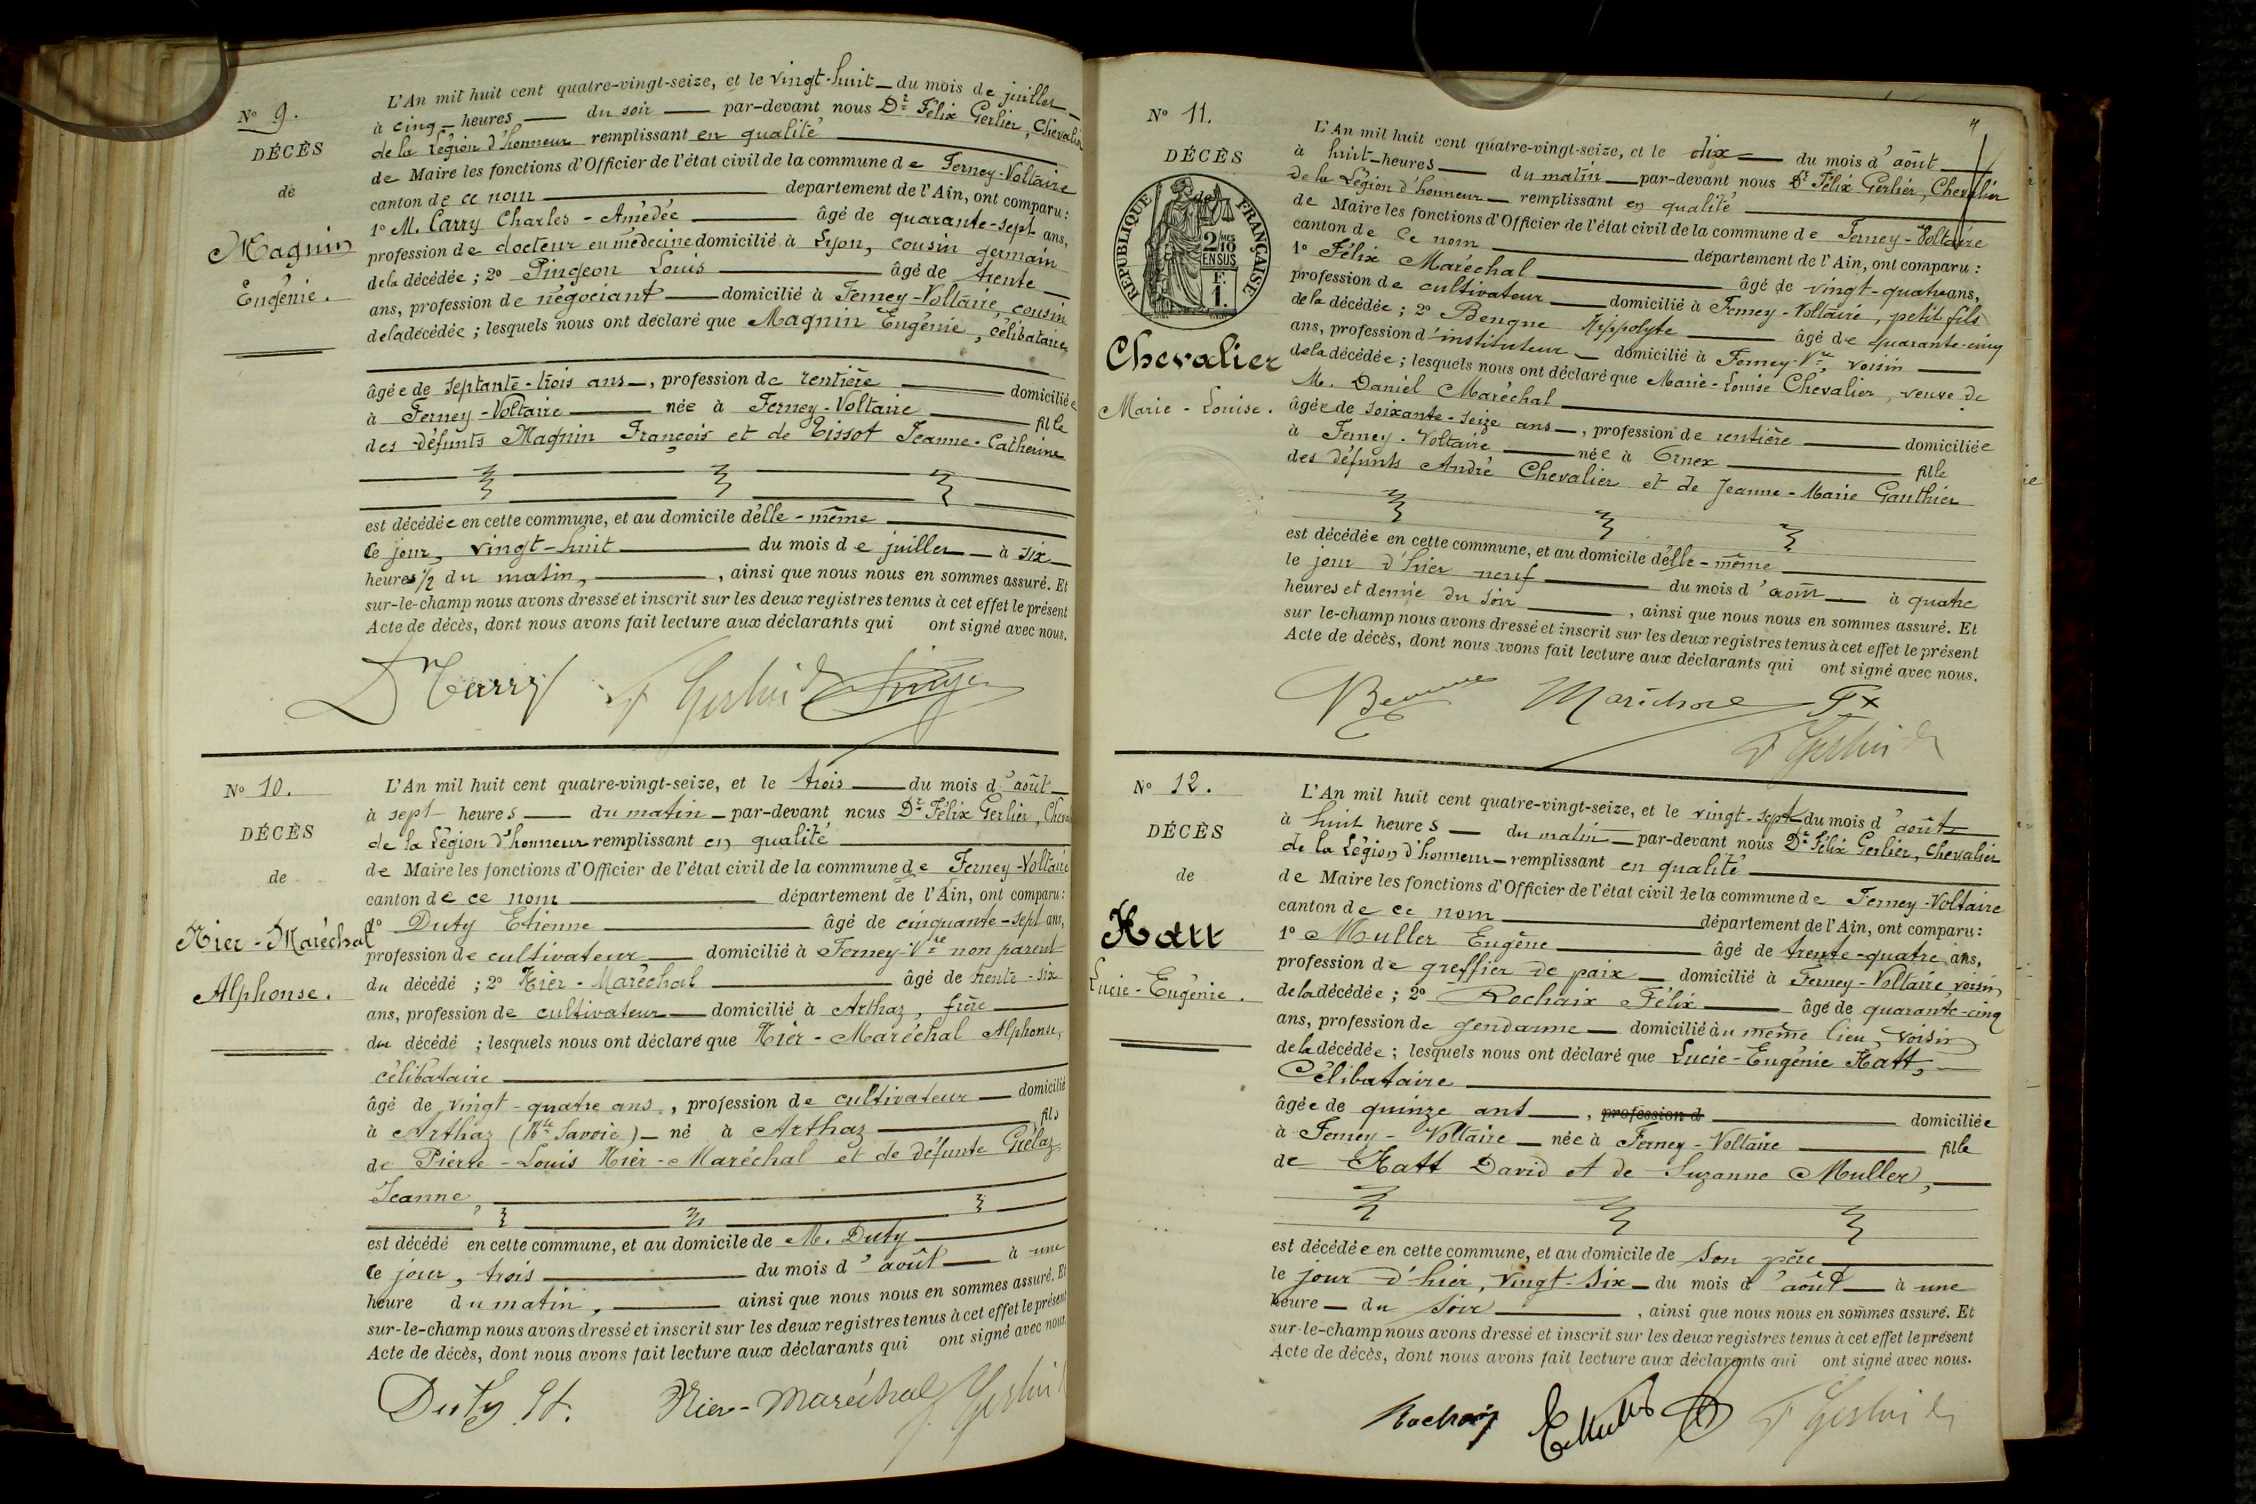 N° 9.
DÉCÈS
de
Magnin
Eugénie.
L'An mil huit cent quatre-vingt-seize, et le vingt-huit du mois de juillet
à cinq heures du soir par-devant nous Dr Félix Gerlier, Chevalier
de la Légion d'honneur remplissant en qualité
de Maire les fonctions d'Officier de l'état civil de la commune de Ferney-Voltaire
canton de ce nom département de l'Ain, ont comparu :
1° M. Carry Charles-Amédée âgé de quarante-sept ans,
profession de docteur en médecine domicilié à Lyon, cousin germain
de la décédée ; 2° Pingeon Louis âgé de trente
ans, profession de négociant domicilié à Ferney-Voltaire, cousin
de la décédée ; lesquels nous ont déclaré que Magnin Eugénie, célibataire,
âgée de septante-trois ans, profession de rentière domiciliée
à Ferney-Voltaire née à Ferney-Voltaire fille
des défunts Magnin François et de Tissot Jeanne-Catherine
est décédée en cette commune, et au domicile d'elle-même
Ce jour, vingt-huit du mois de juillet à six
heures 1/2 du matin, , ainsi que nous nous en sommes assuré. Et
sur-le-champ nous avons dressé et inscrit sur les deux registres tenus à cet effet le présent
Acte de décès, dont nous avons fait lecture aux déclarants qui ont signé avec nous.
Dr Carry F Gerlier
N° 10.
DÉCÈS
de
Hier-Maréchal
Alphonse.
L'An mil huit cent quatre-vingt-seize, et le trois du mois d'août
à sept heures du matin par-devant nous Dr Félix Gerlier, Cheva
de la Légion d'honneur remplissant en qualité
de Maire les fonctions d'Officier de l'état civil de la commune de Ferney-Voltaire
canton de ce nom département de l'Ain, ont comparu :
1° Duty Etienne âgé de cinquante-sept ans,
profession de cultivateur domicilié à Ferney-Vre non parent
du décédé ; 2° Hier-Maréchal âgé de trente-six
ans, profession de cultivateur domicilié à Arthaz, frère
du décédé ; lesquels nous ont déclaré que Hier-Maréchal Alphonse,
célibataire
âgé de vingt-quatre ans, profession de cultivateur domicilié
à Arthaz (Hte Savoie) né à Arthaz fils
de Pierre-Louis Hier-Maréchal et de défunte
Jeanne,
est décédé en cette commune, et au domicile de M. Duty
Ce jour, trois du mois d'août à une
heure du matin, ainsi que nous nous en sommes assuré. Et
sur-le-champ nous avons dressé et inscrit sur les deux registres tenus à cet effet le présent
Acte de décès, dont nous avons fait lecture aux déclarants qui ont signé avec nous
Duty Et. Hier-Maréchal F Gerlier
N° 11.
DÉCÈS
de
RÉPUBLIQUE FRANÇAISE
2/10 MES
EN SUS
F.
1.
Chevalier
Marie-Louise.
L'An mil huit cent quatre-vingt-seize, et le dix du mois d'août
à huit heures du matin par-devant nous Dr Félix Gerlier, Chevalier
de la Légion d'honneur remplissant en qualité
de Maire les fonctions d'Officier de l'état civil de la commune de Ferney-Voltaire
canton de Ce nom département de l'Ain, ont comparu :
1° Félix Maréchal âgé de vingt-quatre ans,
profession de cultivateur domicilié à Ferney-Voltaire, petit fils
de la décédée ; 2° Bengue Hippolyte âgé de quarante-cinq
ans, profession d'instituteur domicilié à Ferney-Vre voisin
de la décédée ; lesquels nous ont déclaré que Marie-Louise Chevalier, veuve de
M. Daniel Maréchal
âgée de soixante-seize ans, profession de rentière domiciliée
à Ferney-Voltaire née à Ornex fille
des défunts André Chevalier et de Jeanne-Marie Gauthier
est décédée en cette commune, et au domicile d'elle-même
le jour d'hier neuf du mois d'août à quatre
heures et demie du soir , ainsi que nous nous en sommes assuré. Et
sur le-champ nous avons dressé et inscrit sur les deux registres tenus à cet effet le présent
Acte de décès, dont nous avons fait lecture aux déclarants qui ont signé avec nous.
Maréchal Fx
F Gerlier
N° 12.
DÉCÈS
de
Hatt
Lucie-Eugénie.
L'An mil huit cent quatre-vingt-seize, et le vingt-sept du mois d'août
à huit heures du matin par-devant nous Dr Félix Gerlier, Chevalier
de la Légion d'honneur remplissant en qualité
de Maire les fonctions d'Officier de l'état civil de la commune de Ferney-Voltaire
canton de ce nom département de l'Ain, ont comparu :
1° Muller Eugène âgé de trente-quatre ans,
profession de greffier de paix domicilié à Ferney-Voltaire, voisin
de la décédée ; 2° Rochaix Félix âgé de quarante-cinq
ans, profession de gendarme domicilié au même lieu, voisin
de la décédée ; lesquels nous ont déclaré que Lucie-Eugénie Hatt,
Célibataire
âgée de quinze ans, profession d domiciliée
à Ferney-Voltaire née à Ferney-Voltaire fille
de Hatt David et de Suzanne Muller,
est décédée en cette commune, et au domicile de son père
le jour d'hier, vingt-six du mois d'août à une
heure du soir , ainsi que nous nous en sommes assuré. Et
sur-le-champ nous avons dressé et inscrit sur les deux registres tenus à cet effet le présent
Acte de décès, dont nous avons fait lecture aux déclarants qui ont signé avec nous.
Rochaix E. Muller F Gerlier